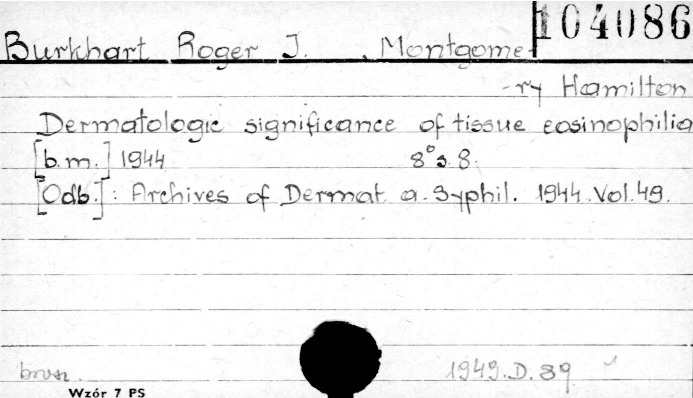 104086
Burkhart Roger J. , Montgome-
-ry Hamilton
Dermatologic significance of tissue eosinophilia
[b.m.] 1944 8° s. 8.
[Odb.]: Archives of Dermat. a. Syphil. 1944. Vol. 49.
brosz. 1949. D. 89
Wzór 7 PS